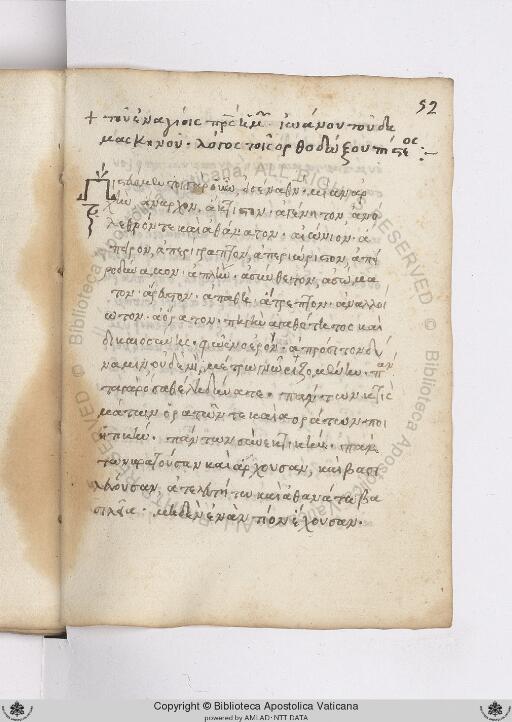 52
+ τοῦ ἐν ἁγίοις πρς ἡμῶν ἰωάνου τοῦ δα
μασκηνοῦ · λόγος τῆς ὀρθοδόξου πίστεος :-
Πιστεύομεν τοιγαροῦν, εἰς ἕνα θν · μίαν ἀρ
χὴν ἄναρχον, ἄκτιστον · ἀγένητον ἀνό
λεθρόν τε καὶ ἀθάνατον · αἰώνιον · ἄ
πειρον, ἀπερίγραπτον, ἀπεριώριστον, ἀπει
ροδύναμον · ἁπλὴν · ἀσύνθετον, ἀσώμα
τον · ἄρευστον · ἀπαθῆ · ἄτρεπτον · ἀναλλοί
ωτον · ἀόρατον · πηγὴν ἀγαθότητος καὶ
δικαιοσύνης · φῶς νοερόν · ἀπρόσιτον δύ
ναμιν οὐδενὶ μέτρω γνωριζομένην · πάν
τα γὰρ ὅσα θέλει δύναται · πάντων κτισ
μάτων ὁρατῶν τε καὶ ἀοράτων ποι
ητικήν · πάντων συνεκτικὴν · πάν
των κρατοῦσαν καὶ ἄρχουσαν, καὶ βασι
λεύουσαν ἀτελευτήτω καὶ ἀθανάτω βα
σιλεία · μηδὲν ἐναντίον ἔχουσαν ·
Copyright © Biblioteca Apostolica Vaticana
powered by AMLAD - NTT DATA